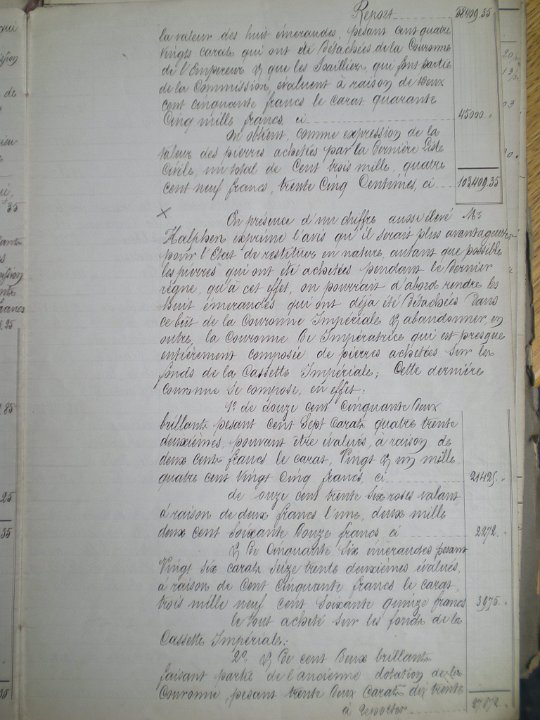 Report 58409.35
la valeur des huit émeraudes, pesant cent quatre
vingts carats qui ont été détachées de la Couronne
de l'Empereur & que les Joailliers qui font partie
de la Commission, évaluent à raison de deux
cent cinquante francs le carat quarante
Cinq mille francs, ci 45000.
On obtient, comme expression de la
valeur des pierres achetées par la dernière Liste
Civile, un total de Cent trois mille, quatre
cent neuf francs, trente Cinq Centimes, ci 103409.35
En présence d'un chiffre aussi élevé Mr
Halphen exprime l'avis qu'il serait plus avantageux
pour l'Etat de restituer en nature, autant que possible
les pierres qui ont été achetées pendant le dernier
règne, qu'à cet effet, on pourrait d'abord rendre les
huit émeraudes qui ont déjà été détachées dans
ce but de la Couronne Impériale & abandonner, en
outre, la Couronne de l'Impératrice qui est presque
entièrement composée de pierres achetées sur les
fonds de la Cassette Impériale; Cette dernière
couronne se compose, en effet:
1º de douze cent Cinquante deux
brillants pesant cent Sept Carats quatre trente
deuxièmes, pouvant être évalués, à raison de
deux cents francs le carat, Vingt & un mille
quatre cent Vingt Cinq francs, ci 21425.
de onze cent trente Six roses valant
à raison de deux francs l'une, deux mille
deux cent Soixante Douze francs, ci 2272.
& de Cinquante Six émeraudes pesant
Vingt Six carats Seize trente deuxièmes évalués,
à raison de Cent Cinquante francs le carat,
trois mille neuf cent Soixante quinze francs 3975.
le tout acheté sur les fonds de la
Cassette Impériale;
2º & de cent Deux brillants
faisant partie de l'ancienne dotation de la
Couronne, pesant trente Deux Carats dix trente
à Reporter